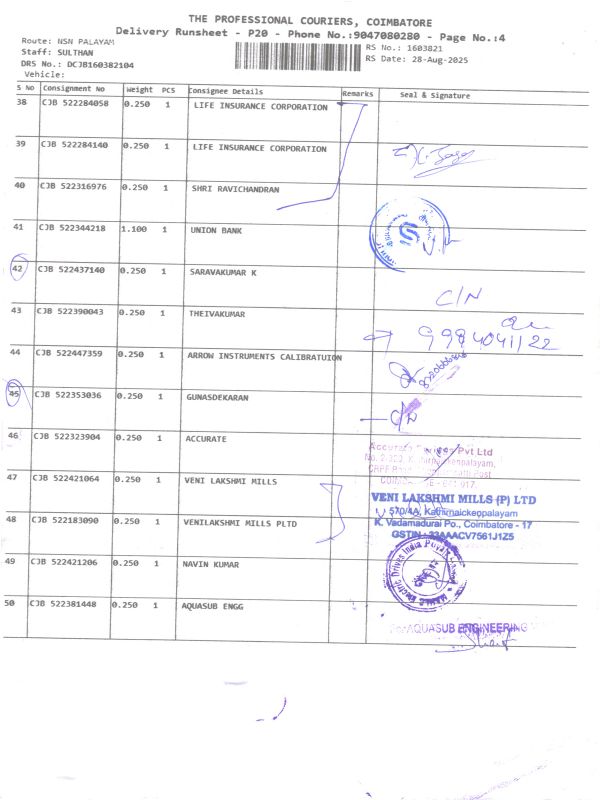 THE PROFESSIONAL COURIERS, COIMBATORE
Delivery Runsheet - P20 - Phone No.:9047080280 - Page No.:4
Route: NSN PALAYAM
RS No.: 1603821
Staff: SULTHAN
RS Date: 28-Aug-2025
DRS No.: DCJB160382104
Vehicle:
S NO Consignment No Weight PCS Consignee Details Remarks Seal & Signature
38 CJB 522284058 0.250 1 LIFE INSURANCE CORPORATION
39 CJB 522284140 0.250 1 LIFE INSURANCE CORPORATION
40 CJB 522316976 0.250 1 SHRI RAVICHANDRAN
41 CJB 522344218 1.100 1 UNION BANK
42 CJB 522437140 0.250 1 SARAVAKUMAR K
C/N
43 CJB 522390043 0.250 1 THEIVAKUMAR
9984041122
44 CJB 522447359 0.250 1 ARROW INSTRUMENTS CALIBRATUION
45 CJB 522353036 0.250 1 GUNASDEKARAN
C/N
46 CJB 522323904 0.250 1 ACCURATE
Pvt Ltd
47 CJB 522421064 0.250 1 VENI LAKSHMI MILLS
VENI LAKSHMI MILLS (P) LTD
570/4A, Kathirnaickeppalayam
48 CJB 522183090 0.250 1 VENILAKSHMI MILLS PLTD
K. Vadamadurai Po., Coimbatore - 17
GSTIN : 33AAACV7561J1Z5
49 CJB 522421206 0.250 1 NAVIN KUMAR
Electric Drives India Private
50 CJB 522381448 0.250 1 AQUASUB ENGG
For AQUASUB ENGINEERING